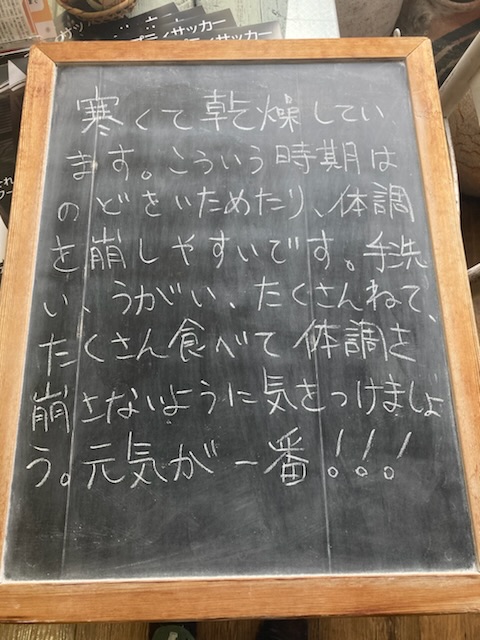 ティサッカー
プティサッカー
寒くて乾燥してい
ます。こういう時期は
のどをいためたり、体調
を崩しやすいです。手洗
い、うがい、たくさんねて、
たくさん食べて体調を
崩さないように気をつけましょ
う。元気が一番!!!